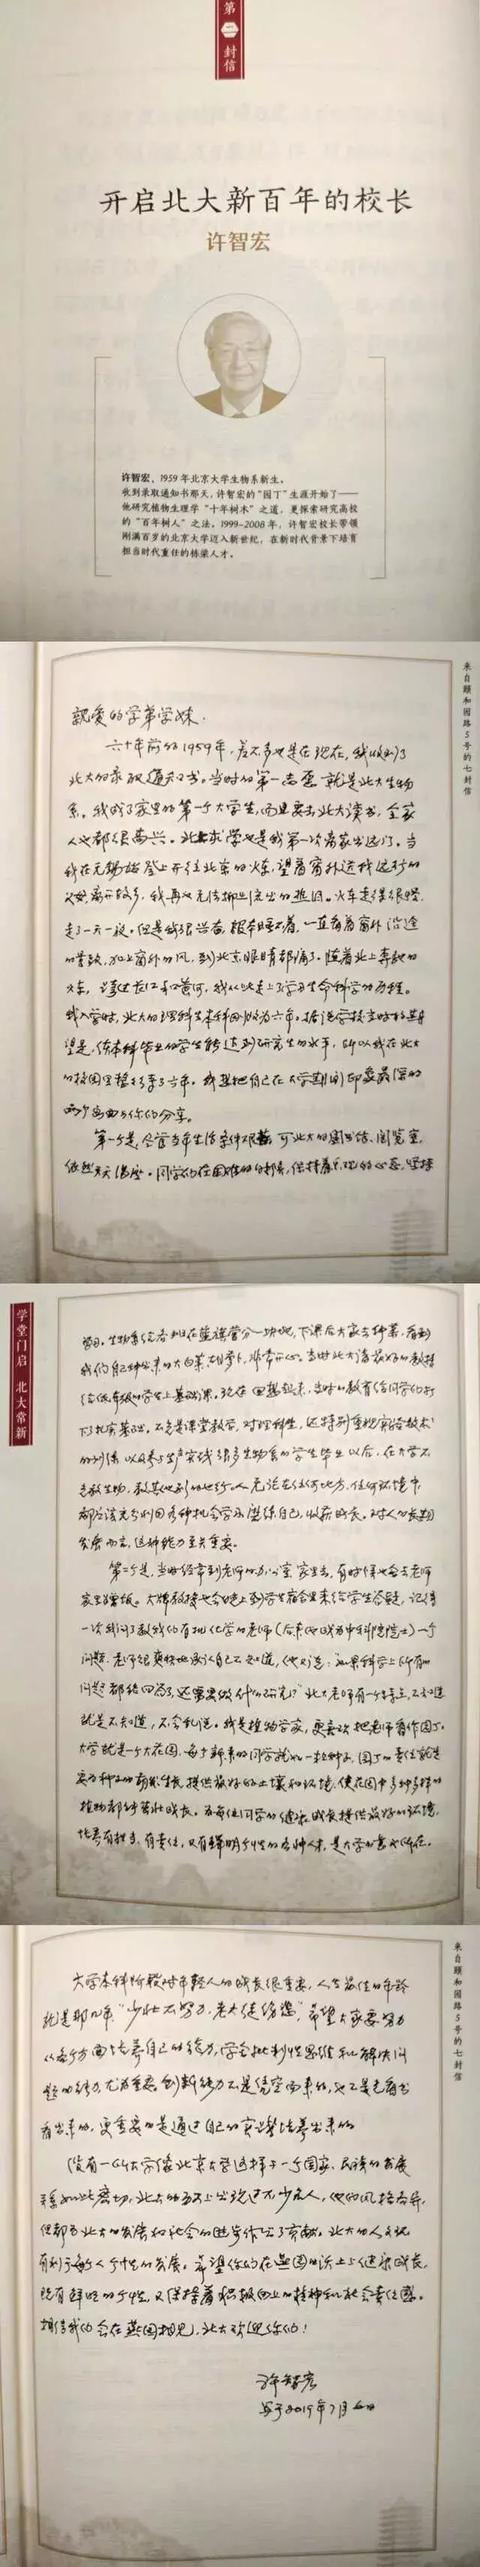 第二封信
开启北大新百年的校长
许智宏
许智宏，1959年北京大学生物系新生。
收到录取通知书那天，许智宏的“园丁”生涯开始了——
他研究植物生理学“十年树木”之道，更探索研究高校
的“百年树人”之法。1999-2008年，许智宏校长带领
刚满百岁的北京大学迈入新世纪，在新时代背景下培育
担当时代重任的栋梁人才。
来自颐和园路5号的七封信
亲爱的学弟学妹：
六十年前的1959年，差不多也是在现在，我收到了
北大的录取通知书。当时的第一志愿就是北大生物
系。我成了家里的第一个大学生，而且要去北大读书，全家
人也都很高兴。北上求学也是我第一次离家出远门。当
我在无锡站登上开往北京的火车，望着窗外送我远行的
父母，离开故乡，我再也无法抑止流出的泪。火车走得很慢，
走了一天一夜。但是我很兴奋，根本睡不着，一直看着窗外沿途
的景致，加上窗外的风，到北京眼睛都痛了。随着北上奔驰的
火车，越过长江和黄河，我从此走上了学习生命科学的历程。
我入学时，北大的理科生本科刚改为六年。据说学校当时的期
望是，使本科毕业的学生能达到研究生的水平，所以我在北大
的校园里整整待了六年。我想把自己在大学期间印象最深的
两个画面与你们分享。
第一个是，尽管当年生活条件艰苦，可北大的图书馆、阅览室，
依然天天满座。同学们在困难的时候，保持着乐观的心态，坚持
学堂门启 北大常新
学习。生物系给各班在蓝旗营分一块地，下课后大家去种菜，看到
我们自己种出来的大白菜、胡萝卜，非常开心。当时北大请最好的教授
给低年级的学生上基础课。现在回想起来，当时的教育给同学们打
下了扎实基础。不光是课堂教学，对理科生，还特别重视实验技术
的训练以及参与生产实践。很多生物系的学生毕业以后，在大学不
光教生物，教其他别的也行。人无论在任何地方，任何环境中，
都应该充分利用各种机会学习、磨练自己，收获成长。对人的长期
发展而言，这种能力至关重要。
第二个是，当时经常到老师的办公室、家里去，有时候也会去老师
家里蹭饭。大牌教授也会晚上到学生宿舍里来给学生答疑，记得
一次我问了教我们有机化学的老师（后来他成为中科院院士）一个
问题，老师很爽快地承认自己不知道，他又说：“如果科学上所有的
问题都给回答了，还需要做什么研究？”北大老师有一个特点，不知道
就是不知道，不会乱说。我是植物学家，更喜欢把老师看作园丁。
大学就是一个大花园，每个新来的同学就如一粒种子，园丁的责任就是
要为种子的萌发生长提供最好的土壤和环境，使花园中多种多样的
植物都能茁壮成长。为每位同学的健康成长提供最好的环境，
培养有担当、有责任，又有鲜明个性的各种人才，是大学的意义所在。
来自颐和园路5号的七封信
大学本科阶段对年轻人的成长很重要，人生最佳的年龄
就是那几年。“少壮不努力，老大徒伤悲”，希望大家要努力
从各个方面培养自己的能力，学会批判性思维和解决问
题的能力，尤为重要。创新能力不是凭空而来的，也不是光看书
看出来的，更重要的是通过自己的实践培养出来的。
没有一所大学像北京大学这样于一个国家、民族的发展
关系如此密切，北大的历史上出现过不少名人，他们风格各异，
但都为北大的发展和社会的进步作出了贡献。北大的人文环境
有利于每个人个性的发展。希望你们在燕园的沃土上健康成长，
既有鲜明的个性，又保持着积极向上的精神和社会责任感。
相信我们会在燕园相见，北大欢迎你们！
许智宏
写于2019年7月